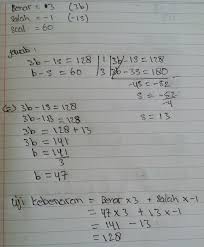 Benar = 3 (3b)
Salah = -1 (-1s)
Soal = 60
Jawab :
3b - 1s = 128 | 1 | 3b - 1s = 128
b - s = 60 | 3 | 3b - 3s = 180
-4s = -52
s = -52
-4
s = 13
3b - 1s = 128
3b - 1s = 128
3b = 128 + 13
3b = 141
b = 141
3
b = 47
Uji kebenaran = Benar x 3 + Salah x -1
= 47 x 3 + 13 x -1
= 141 - 13
= 128